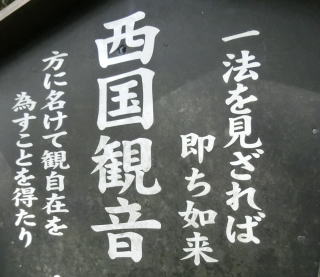 一法を見ざれば
即ち如来
西国観音
方に名けて観自在を
為すことを得たり